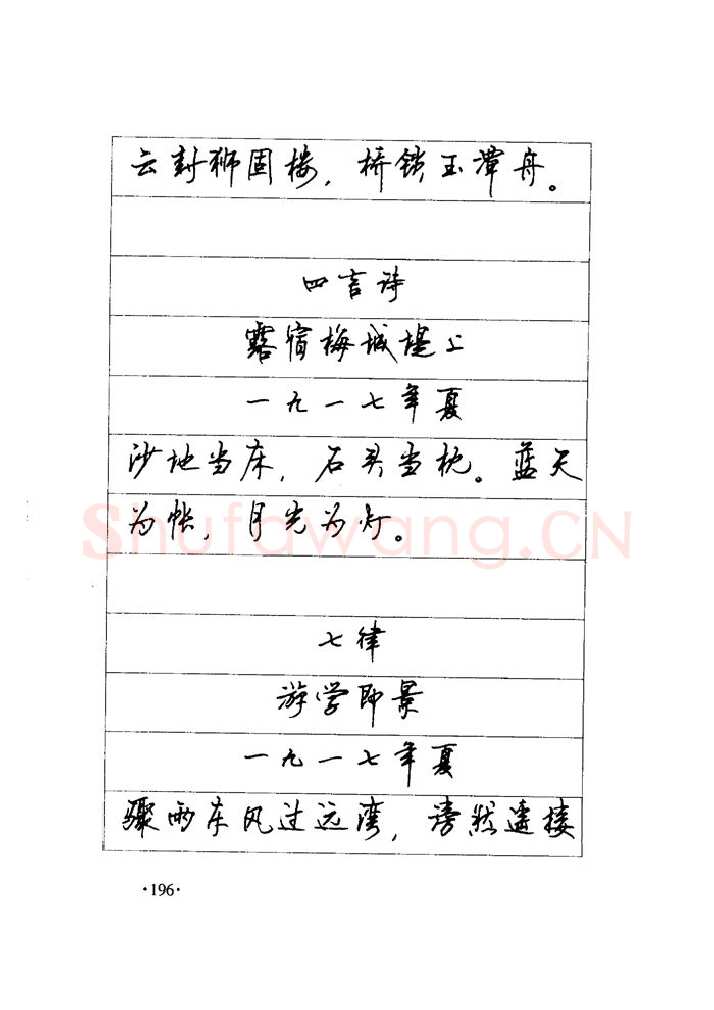 云封狮固楼，桥锁玉潭舟。
四言诗
露宿梅城堤上
一九一七年夏
沙地当床，石头当枕。蓝天
为帐，月光为灯。
Shufawang.CN
七律
游学即景
一九一七年夏
骤雨东风过远湾，滂然遥接
·196·